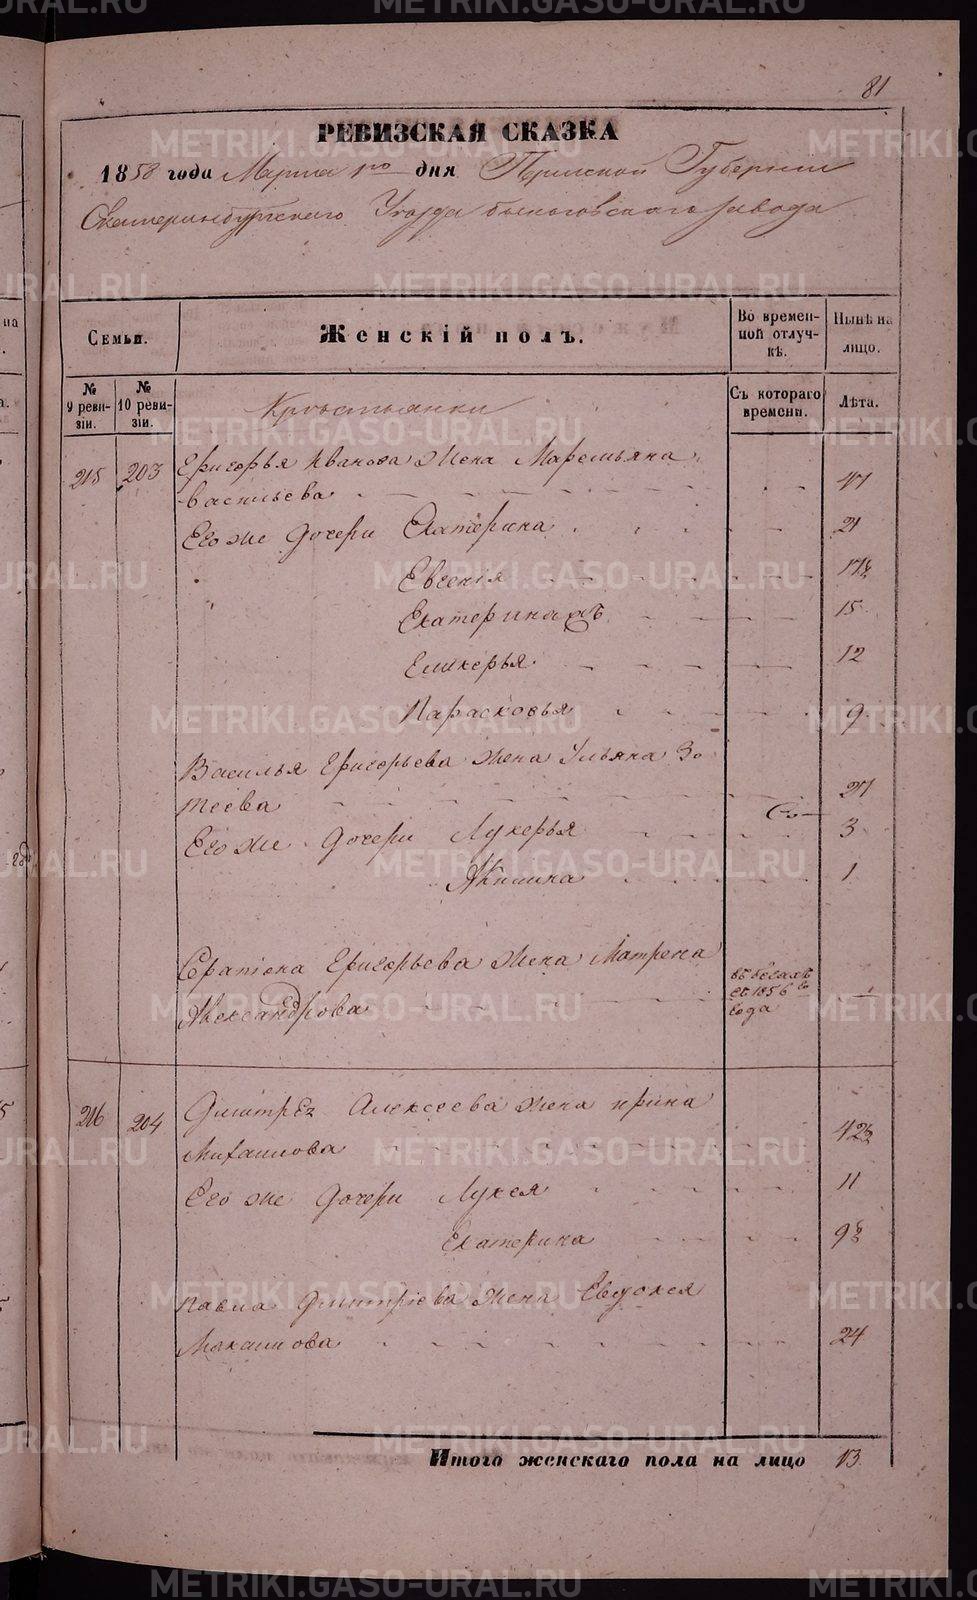 81
РЕВИЗСКАЯ СКАЗКА
1858 года Марта 1го дня Пермской Губернии
Екатеринбургскаго Уезда завода
Семьи.
Женскій полъ.
Во времен-
ной отлуч-
кѣ.
Нынѣ на
лицо.
№
9 реви-
зіи.
№
10 реви-
зіи.
Съ котораго
времени.
Лѣта.
Крестьянки
215 203 Григорья Иванова жена Маремьяна
Васильева 47
Его же дочери Екатерина 21
Евгенія
Екатерина 2хъ 15
Гликерья 12
Парасковья 9
Василья Григорьева жена Ульяна Зо
теева 27
Его же дочери Лукерья 3
Акилина 1
Серапіона Григорьева жена Матрена
Александрова
въ бѣгахъ
съ 1856 го
года
216 204 Алексеева жена Ирина
Михаилова
Его же дочери Лукея 11
Екатерина
Павла Дмитріева жена Евдокея
24
Итого женскаго пола на лицо 13
METRIKI.GASO-URAL.RU